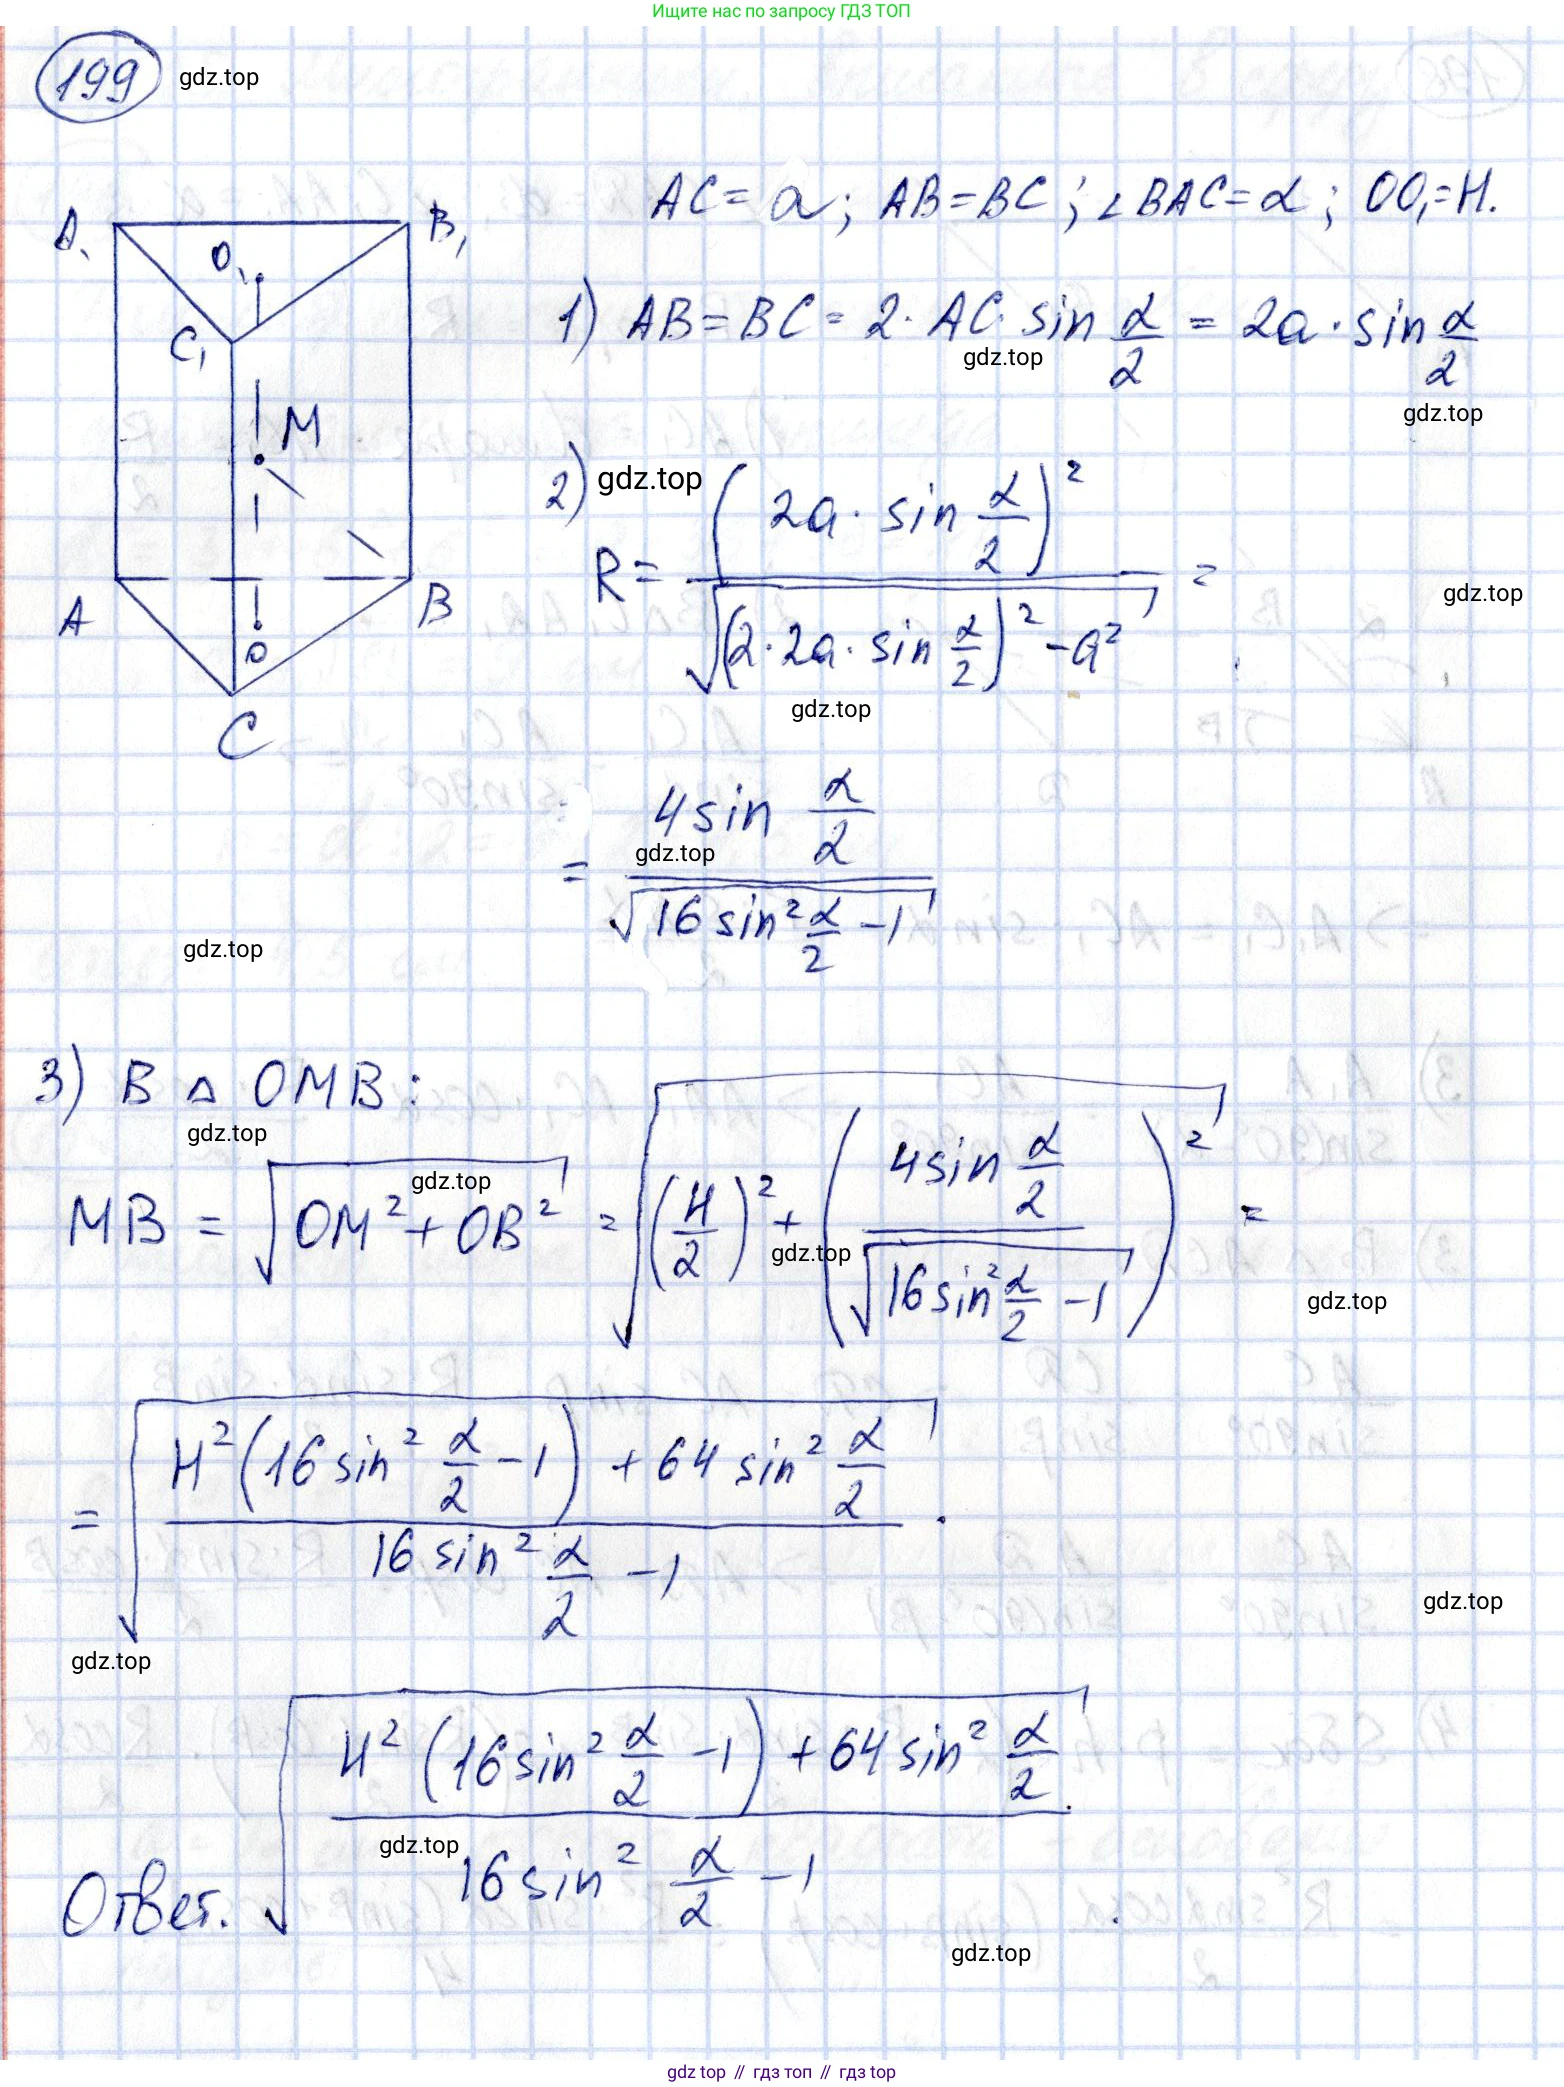 Ищите нас по запросу ГДЗ ТОП
199 gdz.top
AC = a; AB = BC; ∠BAC = α; OO₁ = H.
A₁ B₁
O₁
C₁
M
A B
O
C
1) AB = BC = 2 · AC · sin α/2 = 2a · sin α/2
gdz.top
gdz.top
2) gdz.top
R = (2a · sin α/2)² / √((2 · 2a · sin α/2)² - a²) =
gdz.top
gdz.top
= 4 sin α/2 / √(16 sin² α/2 - 1)
gdz.top
gdz.top
3) В △ OMB:
gdz.top
MB = √(OM² + OB²) = √((H/2)² + (4 sin α/2 / √(16 sin² α/2 - 1))²) =
gdz.top
gdz.top
gdz.top
= √((H² (16 sin² α/2 - 1) + 64 sin² α/2) / (16 sin² α/2 - 1)).
gdz.top
gdz.top
Ответ. √((H² (16 sin² α/2 - 1) + 64 sin² α/2) / (16 sin² α/2 - 1)).
gdz.top
gdz.top
gdz.top // гдз топ // гдз.top